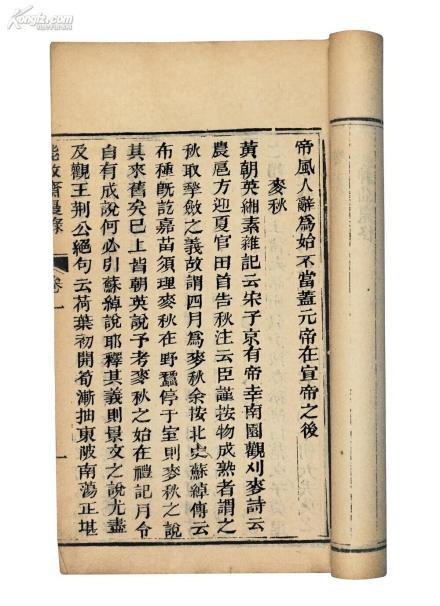 帝風人辭爲始不當蓋元帝在宣帝之後
麥秋
黃朝英緗素雜記云宋子京有帝幸南園觀刈麥詩云
農扈方迎夏官田首告秋注云臣謹按物成熟者謂之
秋取揫斂之義故謂四月爲麥秋余按北史蘇綽傳云
布種旣訖嘉苗須理麥秋在野蠶停于室則麥秋之說
其來舊矣已上皆朝英說予考麥秋之始在禮記月令
自有成說何必引蘇綽說耶釋其義則景文之說尤盡
及觀王荆公絕句云荷葉初開筍漸抽東陂南蕩正堪
能改齋漫錄 卷一
Kongfz.com